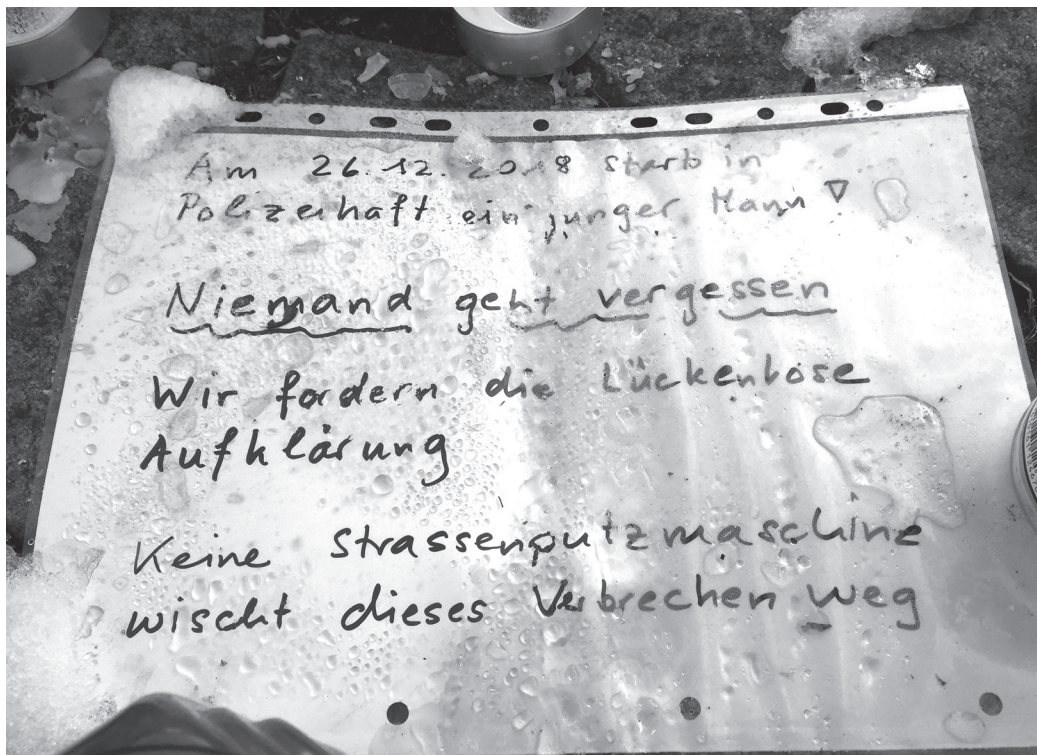 Am 26.12.2018 starb in
Polizeihaft ein junger Mann
Niemand geht vergessen
Wir fordern die Lückenlose
Aufklärung
Keine Strassenputzmaschine
wischt dieses Verbrechen weg